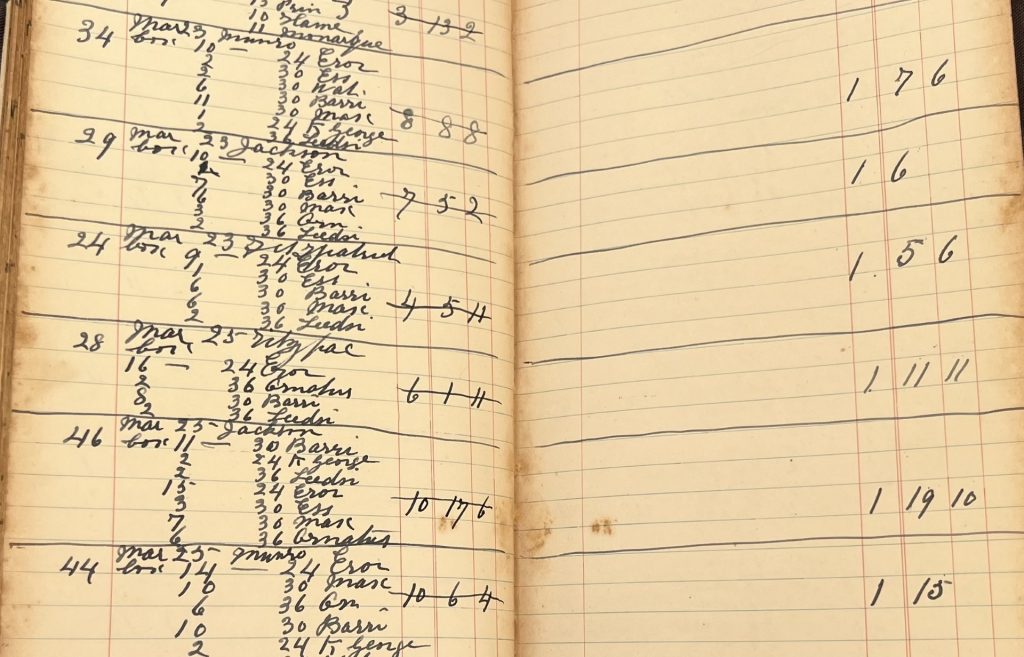 13 Prin 3
10 Flame
11 Monarque 3 13 2
34 Mar 23 Munro
box 10 — 24 Eror
2 30 Ess
2 30 Nat.
6 30 Barri
11 30 Masc
1 24 K George 8 8 8 1 7 6
2 36 Leedsi
29 Mar 23 Jackson
box 10 — 24 Eror
30 Ess
7 30 Barri
6 30 Masc 7 5 2 1 6
3 36 Orn
2 36 Leedsi
24 Mar 23 Fitzpatrick
box 9 — 24 Eror
1 30 Ess
6 30 Barri
6 30 Masc 4 5 11 1 5 6
2 36 Leedsi
28 Mar 25 Fitzpac
box
16 — 24 Eror
2 36 Ornatus
8 30 Barri 6 1 11 1 11 11
2 36 Leedsi
46 Mar 25 Jackson
box 11 — 30 Barri
2 24 K George
2 36 Leedsi
15 24 Eror
3 30 Ess 10 17 6 1 19 10
7 30 Masc
6 36 Ornatus
44 Mar 25 Munro
box 14 — 24 Eror
10 30 Masc
6 36 Orn 10 6 4 1 15
10 30 Barri
2 24 K George